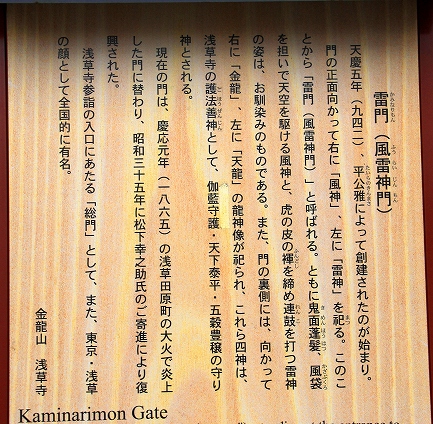 雷門（風雷神門）
天慶五年（九四二）、平公雅によって創建されたのが始まり。
門の正面向かって右に「風神」、左に「雷神」を祀る。このこ
とから「雷門（風雷神門）」と呼ばれる。ともに鬼面蓬髪、風袋
を担いで天空を駆ける風神と、虎の皮の褌を締め連鼓を打つ雷神
の姿は、お馴染みのものである。また、門の裏側には、向かって
右に「金龍」、左に「天龍」の龍神像が祀られ、これら四神は、
浅草寺の護法善神として、伽藍守護・天下泰平・五穀豊穣の守り
神とされる。
現在の門は、慶応元年（一八六五）の浅草田原町の大火で炎上
した門に替わり、昭和三十五年に松下幸之助氏のご寄進により復
興された。
浅草寺参詣の入口にあたる「総門」として、また、東京・浅草
の顔として全国的に有名。
金龍山　浅草寺
Kaminarimon Gate